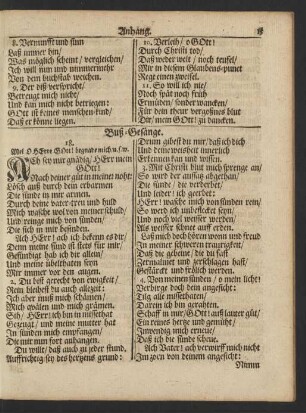 Anhang.
8. Vernunfft und sinn
Laß nimmer hin/
Was möglich scheint/ vergleichen/
Ich will nun und nimmermehr
Von dem buchstab weichen.
9. Der diß verspricht/
Betreugt mich nicht/
Und kan mich nicht betriegen:
GOtt ist keines menschen-kind/
Daß er könne liegen.
10. Verleih/ o GOtt!
Durch Christi tod/
Daß weder welt/ noch teufel/
Mir in diesem Glaubens-punct
Rege einen zweifel.
11. So will ich nie/
Noch spät noch früh
Ermüden/ sonder wancken
Für dein theur vergoßnes blut
Dir/ mein GOtt/ zu dancken.
Buß-Gesänge.
18.
Mel. O HErre GOtt! begnade mich u.s.w.
ACh sey mir gnädig/ HErr mein
GOtt!
Nach deiner güt in meiner noht:
Lösch auß durch dein erbarmen
Die sünde in mir armen.
Durch deine vater-treu und huld
Mich wasche wol von meiner schuld/
Und reinge mich von sünden/
Die sich in mir befinden.
Ach HErr! ach ich bekenn es dir/
Denn meine sünd ist stets für mir/
Gesündigt hab ich dir allein/
Und meine übelthaten seyn
Mir immer vor den augen.
2. Du bist gerecht von ewigkeit/
Rein bleibest du auch allezeit:
Ich aber muß mich schämen/
Mich selbsten und mich grämen.
Sih/ HErr! ich bin in missethat
Gezeugt/ und meine mutter hat
In sünden mich empfangen/
Die mir nun fort anhangen.
Du willt/ daß auch zu jeder stund,
Auffrichtig sey des hertzens grund:
Drum gibest du mir/ daß ich dich
Und deine weisheit innerlich
Erkennen kan und wissen.
3. Mit Christi blut mich sprenge an/
So wird der außsatz abgethan/
Die sünde/ die verderbet/
Und leider! ich geerbet:
HErr! wasche mich von sünden rein/
So werd ich unbeflecket seyn:
Und noch viel weisser werden/
Als weisser schnee auff erden.
Laß mich doch hören wonn und freud
In meiner schweren traurigkeit/
Daß die gebeine/ die du fast
Zermalmet und zerschlagen hast/
Gestärckt und frölich werden.
4. Von meinen sünden/ o mein licht!
Verbirge doch dein angesicht:
Tilg alle missethaten/
Darein ich bin gerahten.
Schaff in mir/ GOtt! auß lauter güt/
Ein reines hertze und gemüht/
Inwendig mich erneue/
Daß ich die sünde scheue.
Ach Vater! ach verwirff mich nicht
Im zorn von deinem angesicht:
Nimm